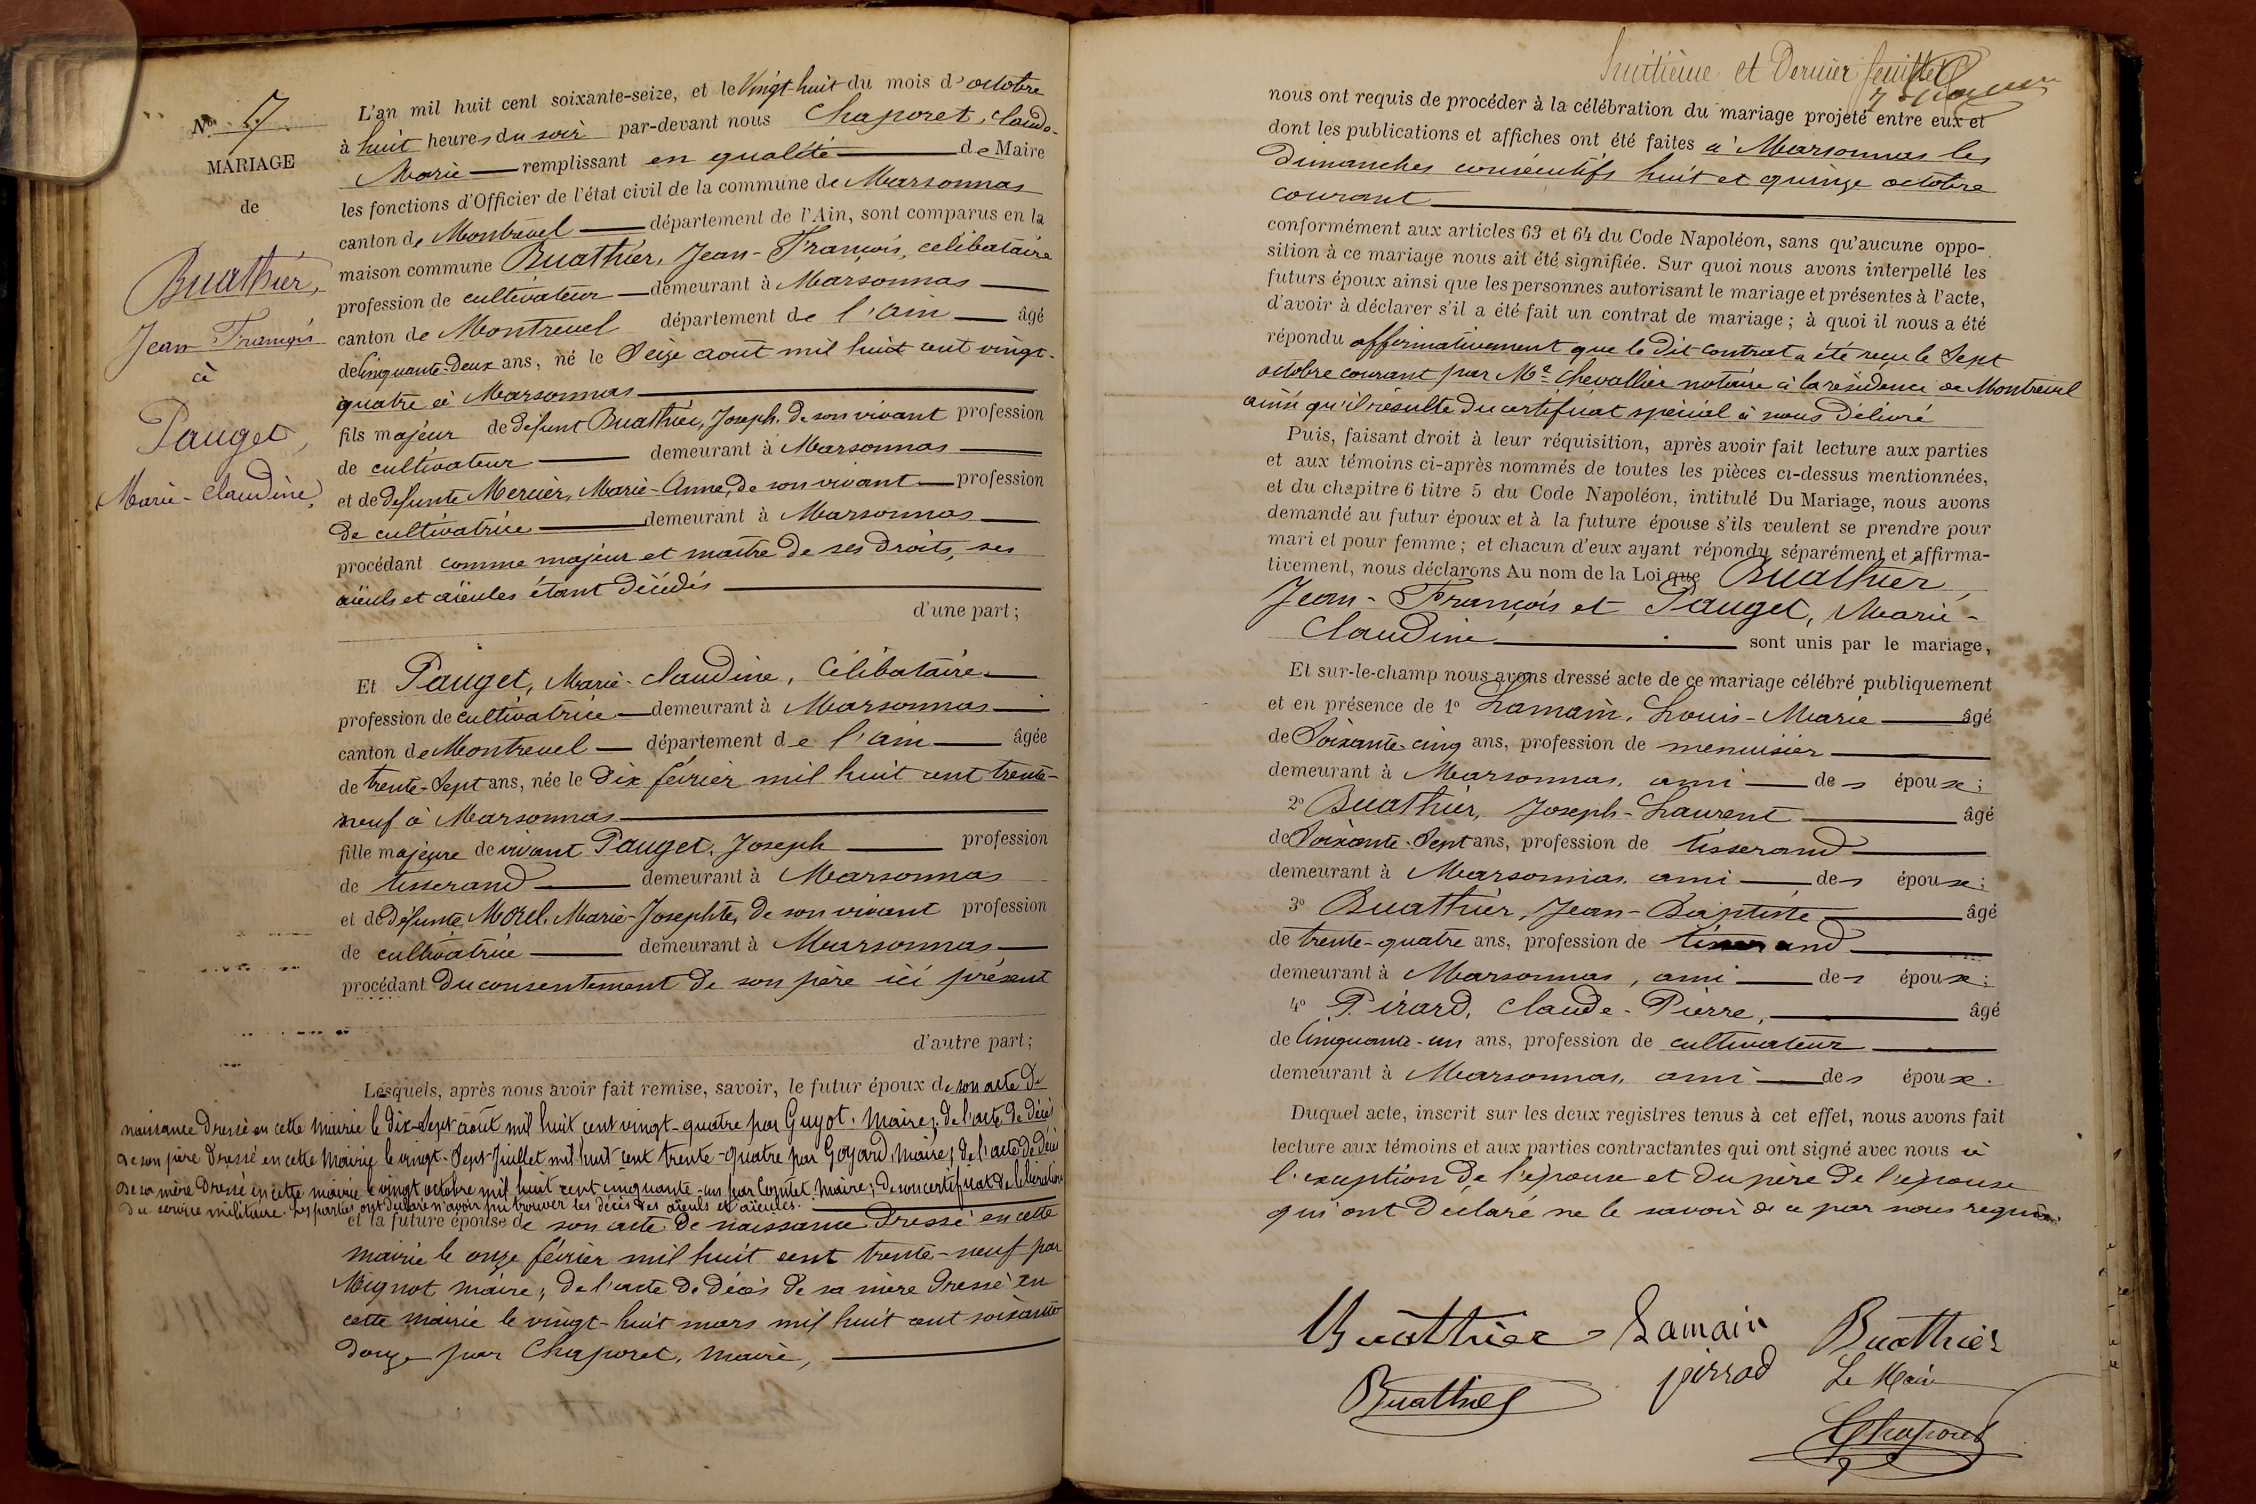 N° 7
MARIAGE
de
Buathier,
Jean François
à
Pauget,
Marie-Claudine,
L'an mil huit cent soixante-seize, et le Vingt-huit du mois d'octobre
à huit heures du soir par-devant nous Chaporet, Claude-
Marie remplissant en qualité de Maire
les fonctions d'Officier de l'état civil de la commune de Marsonnas
canton de Montrevel département de l'Ain, sont comparus en la
maison commune Buathier, Jean-François, célibataire
profession de cultivateur demeurant à Marsonnas
canton de Montrevel département de l'Ain âgé
de Cinquante-deux ans, né le Seize août mil huit cent vingt-
quatre à Marsonnas
fils majeur de défunt Buathier, Joseph, de son vivant profession
de cultivateur demeurant à Marsonnas
et de défunte Mercier, Marie-Anne, de son vivant profession
de cultivatrice demeurant à Marsonnas
procédant comme majeur et maître de ses droits, ses
aïeuls et aïeules étant décédés
d'une part;
Et Pauget, Marie-Claudine, Célibataire
profession de cultivatrice demeurant à Marsonnas
canton de Montrevel département de l'Ain âgée
de trente-Sept ans, née le Dix février mil huit cent trente-
neuf à Marsonnas
fille majeure de vivant Pauget, Joseph profession
de tisserand demeurant à Marsonnas
et de défunte Morel, Marie-Josephte, de son vivant profession
de cultivatrice demeurant à Marsonnas
procédant du consentement de son père ici présent
d'autre part;
Lesquels, après nous avoir fait remise, savoir, le futur époux de son acte de
naissance dressé en cette mairie le dix-sept août mil huit cent vingt-quatre par Guyot, Maire; de l'acte de décès
de son père dressé en cette Mairie le vingt-Sept Juillet mil huit cent trente-quatre par Goyard, Maire; de l'acte de décès
de sa mère dressé en cette mairie le vingt octobre mil huit cent cinquante-un par Comtet, Maire; de son certificat de libération
du service militaire. Les parties ont déclaré n'avoir pu trouver les décès des aïeuls et aïeules.
et la future épouse de son acte de naissance dressé en cette
mairie le onze février mil huit cent trente-neuf par
Mignot maire; de l'acte de décès de sa mère dressé en
cette mairie le vingt-huit mars mil huit cent soixante
douze par Chaporet, maire,
huitième et dernier feuillet
nous ont requis de procéder à la célébration du mariage projeté entre eux et
dont les publications et affiches ont été faites à Marsonnas les
dimanches consécutifs huit et quinze octobre
courant
conformément aux articles 63 et 64 du Code Napoléon, sans qu'aucune oppo-
sition à ce mariage nous ait été signifiée. Sur quoi nous avons interpellé les
futurs époux ainsi que les personnes autorisant le mariage et présentes à l'acte,
d'avoir à déclarer s'il a été fait un contrat de mariage; à quoi il nous a été
répondu affirmativement que le dit contrat a été reçu le Sept
octobre courant par Me Chevallier notaire à la résidence de Montrevel
ainsi qu'il résulte du certificat spécial à nous délivré
Puis, faisant droit à leur réquisition, après avoir fait lecture aux parties
et aux témoins ci-après nommés de toutes les pièces ci-dessus mentionnées,
et du chapitre 6 titre 5 du Code Napoléon, intitulé Du Mariage, nous avons
demandé au futur époux et à la future épouse s'ils veulent se prendre pour
mari et pour femme; et chacun d'eux ayant répondu séparément et affirma-
tivement, nous déclarons Au nom de la Loi que Buathier,
Jean-François et Pauget, Marie-
Claudine sont unis par le mariage,
Et sur-le-champ nous avons dressé acte de ce mariage célébré publiquement
et en présence de 1° Lamain, Louis-Marie âgé
de Soixante-cinq ans, profession de menuisier
demeurant à Marsonnas, ami des époux;
2° Buathier, Joseph-Laurent âgé
de Soixante-Sept ans, profession de tisserand
demeurant à Marsonnas, ami des époux;
3° Buathier, Jean-Baptiste âgé
de trente-quatre ans, profession de tisserand
demeurant à Marsonnas, ami des époux;
4° Pirard, Claude-Pierre, âgé
de Cinquante-un ans, profession de cultivateur
demeurant à Marsonnas, ami des époux.
Duquel acte, inscrit sur les deux registres tenus à cet effet, nous avons fait
lecture aux témoins et aux parties contractantes qui ont signé avec nous à
l'exception de l'épouse et du père de l'épouse
qui ont déclaré ne le savoir de ce par nous requis.
Buathier Lamain Buathier
Buathier pirrad Le Maire
Chaporet